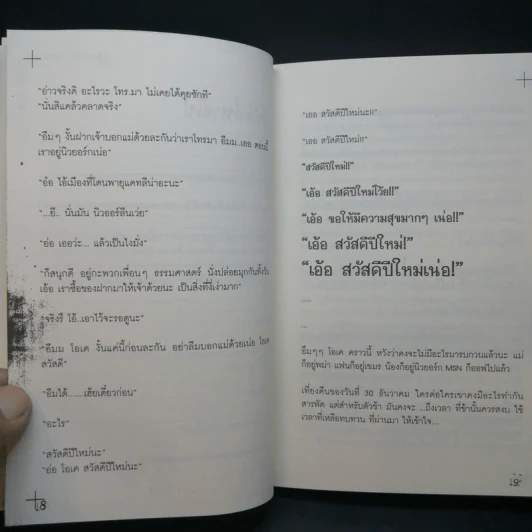 "อ่าวจริงดิ อะไรวะ โทร.มา ไม่เคยได้คุยซักที"
"นั่นสิแคล้วคลาดจริง"
"อืมๆ งั้นฝากเจ้าบอกแม่ด้วยละกันว่าเราโทรมา อืมม..เออ ตอนนี้
เราอยู่นิวยอร์กเน่อ"
"อ๋อ ไอ้เมืองที่โดนพายุแคทลีน่าอะนะ"
"...ยึ.. นั่นมัน นิวออร์ลีนเว่ย"
"อ่อ เออว่ะ... แล้วเป็นไงมั่ง"
"ก็สนุกดี อยู่กะพวกเพื่อนๆ ธรรมศาสตร์ นั่งปล่อยมุกกันทั้งวัน
เอ้อ เราซื้อของฝากมาให้เจ้าด้วยนะ เป็นสิ่งที่งี่เง่ามาก"
"จริงรึ โอ้..เอาไว้จะรอดูนะ"
"อืมม โอเค งั้นแค่นี้ก่อนละกัน อย่าลืมบอกแม่ด้วยเน่อ โอเค
สวัสดี"
"อืมได้......เฮ้ยเดี๋ยวก่อน"
"อะไร"
"สวัสดีปีใหม่นะ"
"อ่อ โอเค สวัสดีปีใหม่นะ"
18
"เออ สวัสดีปีใหม่นะ!!"
"เออ สวัสดีปีใหม่!!"
"สวัสดีปีใหม่!!"
"เอ้อ สวัสดีปีใหม่โว้ย!!"
"เอ้อ ขอให้มีความสุขมากๆ เน่อ!!"
"เอ้อ สวัสดีปีใหม่!"
"เอ้อ สวัสดีปีใหม่เน่อ!"
....
...
อืมๆๆ โอเค คราวนี้ หวังว่าคงจะไม่มีอะไรมารบกวนแล้วนะ แม่
ก็อยู่พม่า แฟนก็อยู่เขมร น้องก็อยู่นิวยอร์ก MSN ก็ออฟไปแล้ว
เที่ยงคืนของวันที่ 30 ธันวาคม ใครต่อใครเขาคงมีอะไรทำกัน
สารพัด แต่สำหรับตัวข้า มันคงจะ ...ถึงเวลา ที่ข้านั้นควรสงบ ใช้
เวลาที่เหลือทบทวน ที่ผ่านมา ให้เข้าใจ...
19